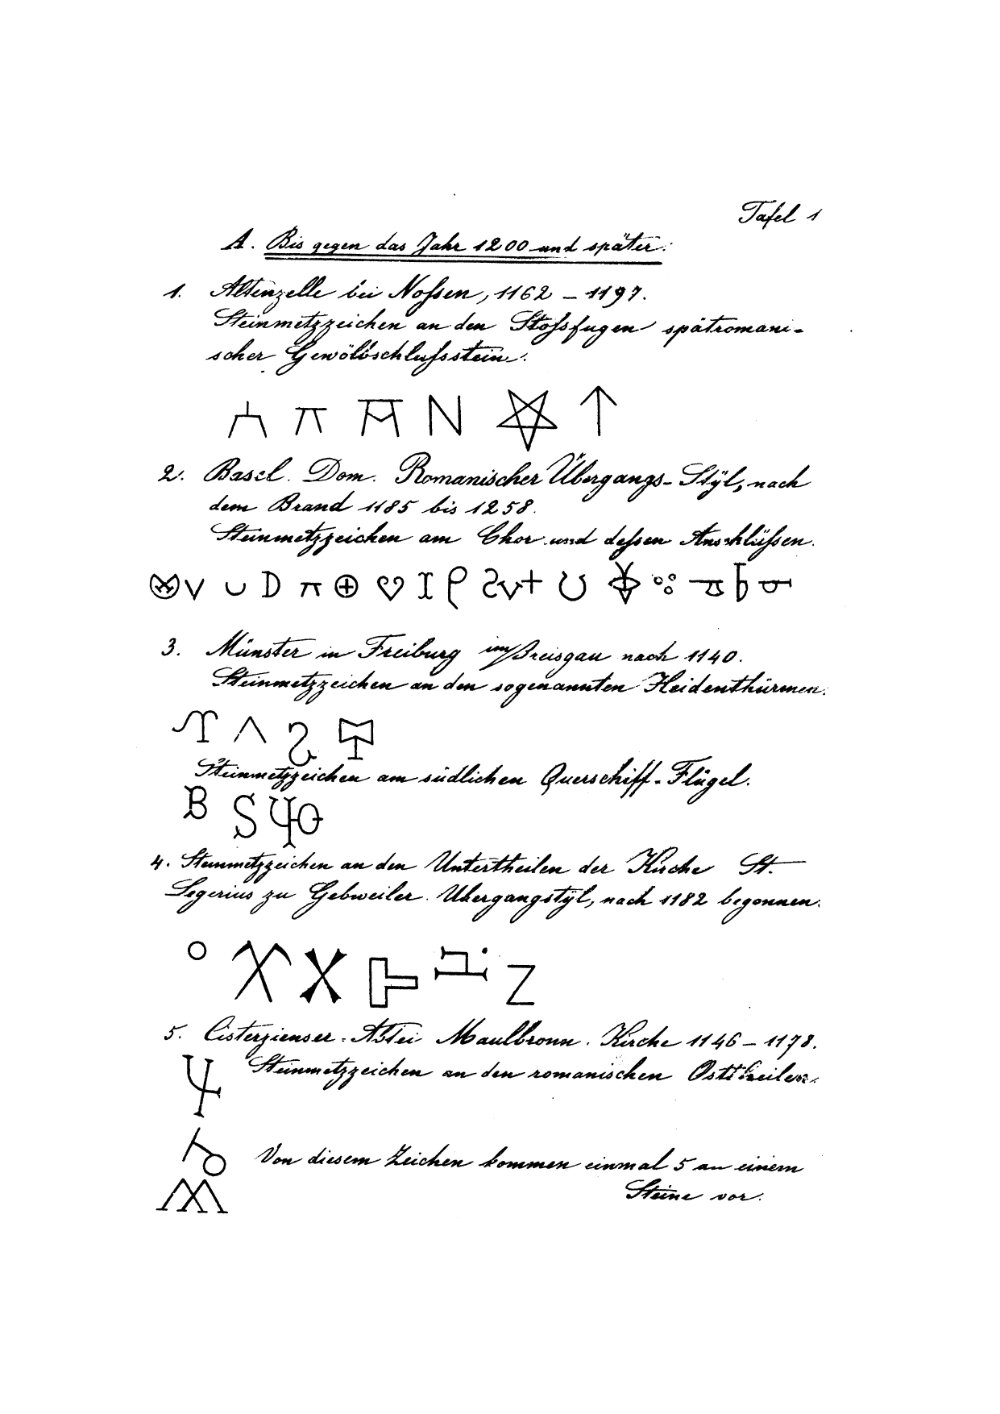 Tafel 1
A. Bis gegen das Jahr 1200 und später.
1. Altenzelle bei Noſsen, 1162 – 1197.
Steinmetzzeichen an den Stoſsfugen spätromani-
scher Gewölbschluſsstein.
2. Basel. Dom. Romanischer Übergangs-Styl, nach
dem Brand 1185 bis 1258.
Steinmetzzeichen am Chor und deſsen Anschlüſsen.
3. Münster in Freiburg im Breisgau nach 1140.
Steinmetzzeichen an den sogenannten Heidenthürmen.
Steinmetzzeichen am südlichen Querschiff-Flügel.
4. Steinmetzzeichen an den Untertheilen der Kirche St.
Legerius zu Gebweiler. Übergangstyl, nach 1182 begonnen.
5. Cisterzienser-Abtei Maulbronn. Kirche 1146 – 1178.
Steinmetzzeichen an den romanischen Osttheilen.
Von diesem Zeichen kommen einmal 5 an einem
Steine vor.